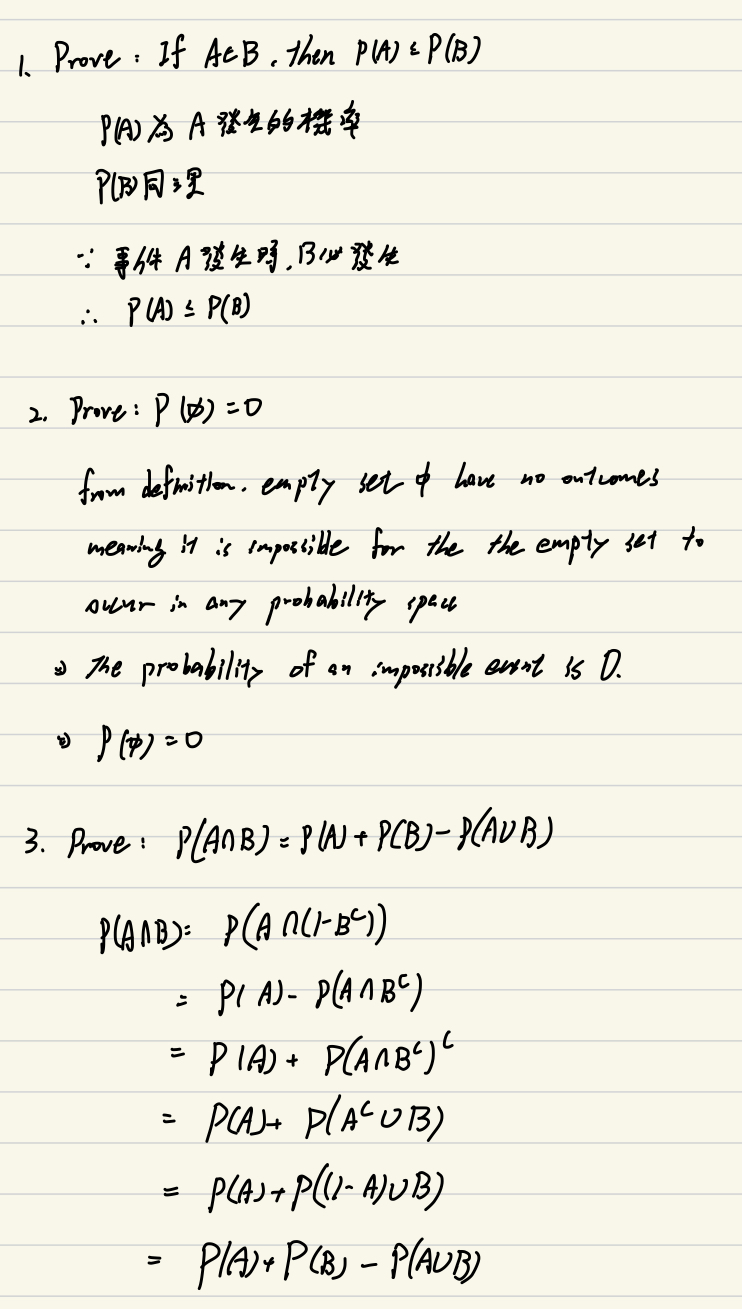 1. Prove : If A⊂B , then P(A) ≤ P(B)
P(A) 為 A 發生的機率
P(B) 同理
∵ 事件 A 發生時 , B必發生
∴ P(A) ≤ P(B)
2. Prove : P(ϕ) = 0
from definition . empty set ϕ have no outcomes
meaning it is impossible for the the empty set to
occur in any probability space
⇒ The probability of an impossible event is 0.
⇒ P(ϕ) = 0
3. Prove : P(A∩B) = P(A) + P(B) - P(A∪B)
P(A∩B) = P(A∩(1-Bᶜ))
= P(A) - P(A∩Bᶜ)
= P(A) + P(A∩Bᶜ)ᶜ
= P(A) + P(Aᶜ∪B)
= P(A) + P((1-A)∪B)
= P(A) + P(B) - P(A∪B)